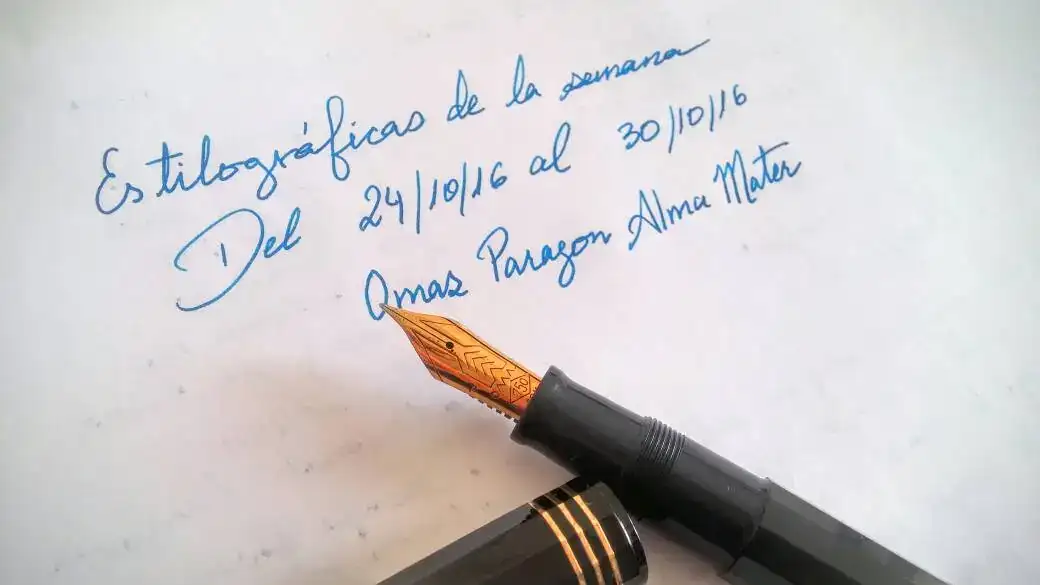 Estilográficas de la semana
Del 24/10/16 al 30/10/16
Omas Paragon Alma Mater
750